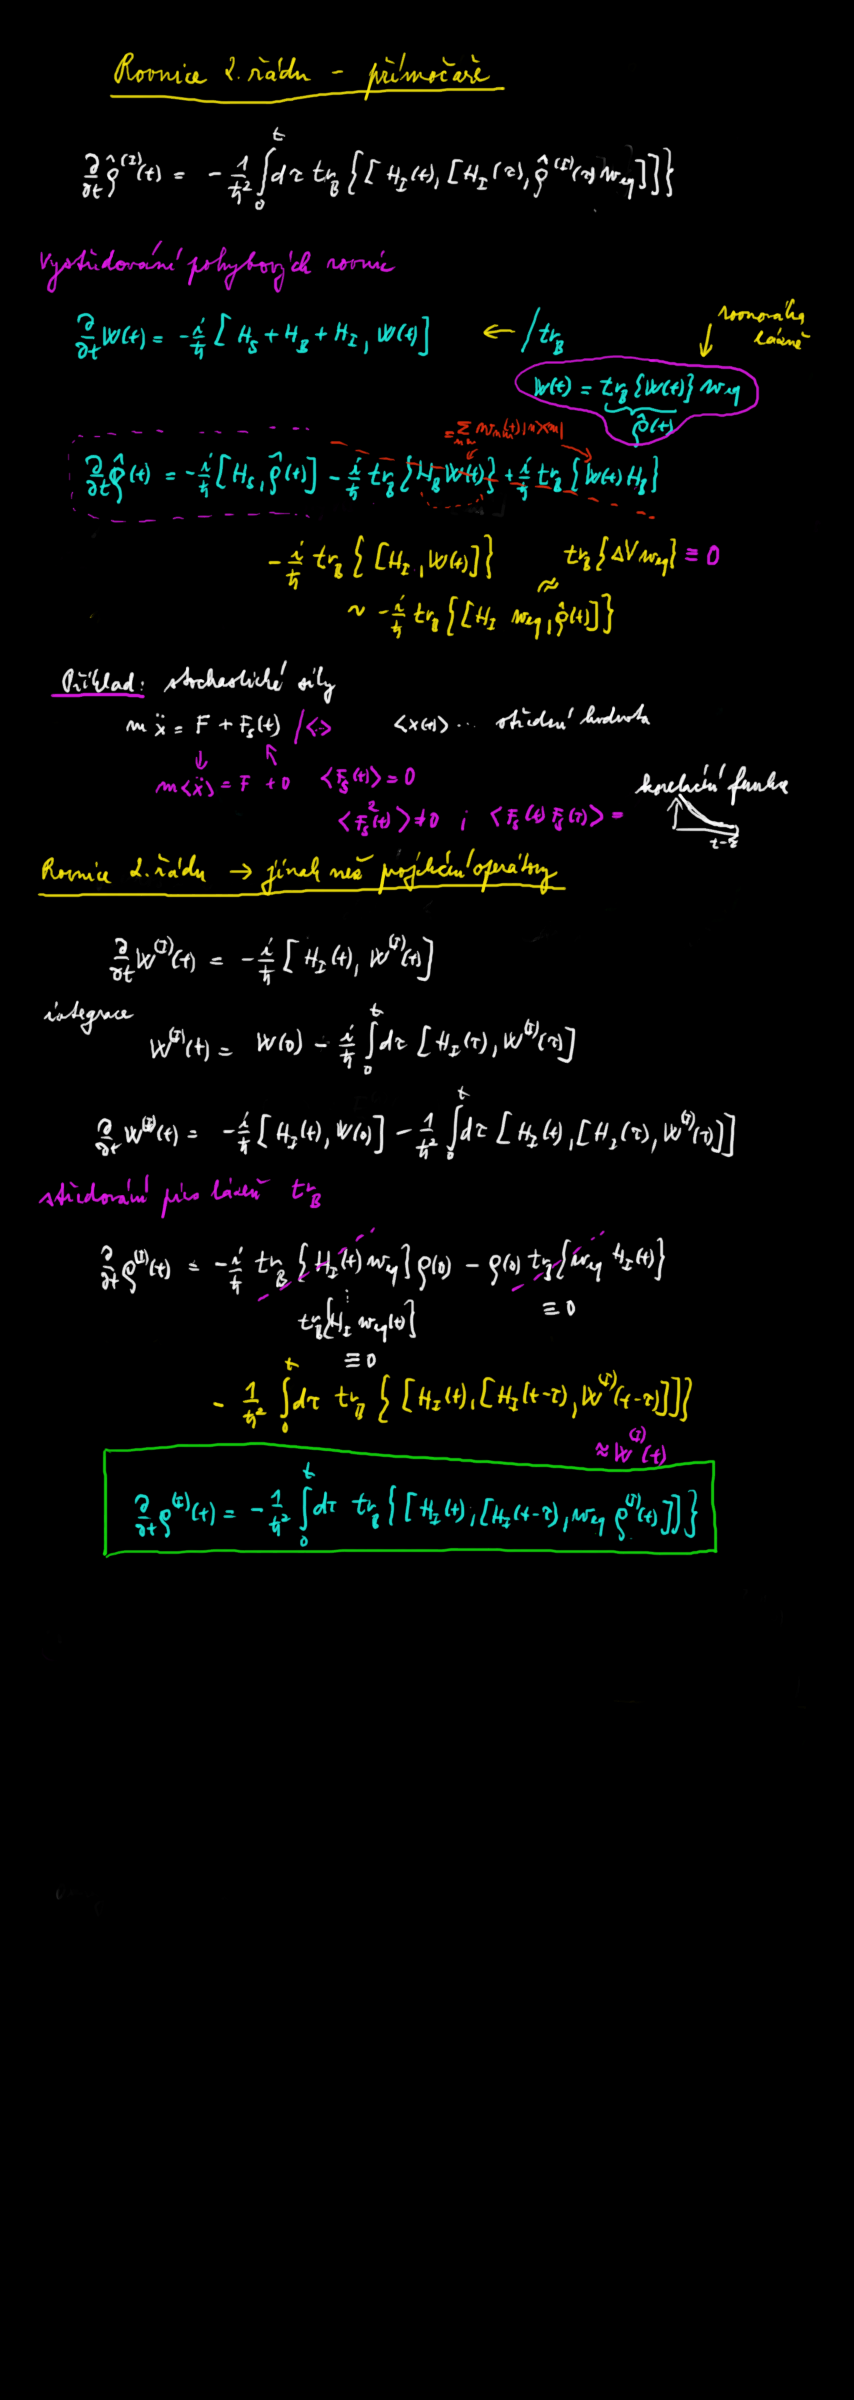 Rovnice 2. řádu - přímočaře
∂/∂t ρ̂^(I)(t) = - 1/ħ² ∫₀^t dτ tr_B {[H_I(t), [H_I(τ), ρ̂^(I)(τ) w_eq]]}
Vystředování pohybových rovnic
rovnováha
lázně
∂/∂t W(t) = - i/ħ [H_S + H_B + H_I, W(t)] ← / tr_B
W(t) = tr_B{W(t)} w_eq
ρ̂(t)
= Σ_nm w_nm(t) |n><m|
∂/∂t ρ̂(t) = - i/ħ [H_S, ρ̂(t)] - i/ħ tr_B {H_B W(t)} + i/ħ tr_B {W(t) H_B}
- i/ħ tr_B {[H_I, W(t)]} tr_B {ΔV w_eq} ≡ 0
≈
~ - i/ħ tr_B {[H_I w_eq, ρ̂(t)]}
Příklad: stochastické síly
m ẍ = F + F_S(t) / <> <x(t)> ... střední hodnota
m<ẍ> = F + 0 <F_S(t)> = 0
korelační funkce
<F_S²(t)> ≠ 0 ; <F_S(t) F_S(τ)> =
t-τ
Rovnice 2. řádu → jinak než projekční operátory
∂/∂t W^(I)(t) = - i/ħ [H_I(t), W^(I)(t)]
integrace
W^(I)(t) = W(0) - i/ħ ∫₀^t dτ [H_I(τ), W^(I)(τ)]
∂/∂t W^(I)(t) = - i/ħ [H_I(t), W(0)] - 1/ħ² ∫₀^t dτ [H_I(t), [H_I(τ), W^(I)(τ)]]
středování přes lázeň tr_B
∂/∂t ρ^(I)(t) = - i/ħ tr_B {H_I(t) w_eq} ρ(0) - ρ(0) tr_B {w_eq H_I(t)}
tr_B{H_I w_eq(t)} ≡ 0
≡ 0
- 1/ħ² ∫₀^t dτ tr_B {[H_I(t), [H_I(t-τ), W^(I)(t-τ)]]}
≈ W^(I)(t)
∂/∂t ρ^(I)(t) = - 1/ħ² ∫₀^t dτ tr_B {[H_I(t), [H_I(t-τ), w_eq ρ^(I)(t)]]}